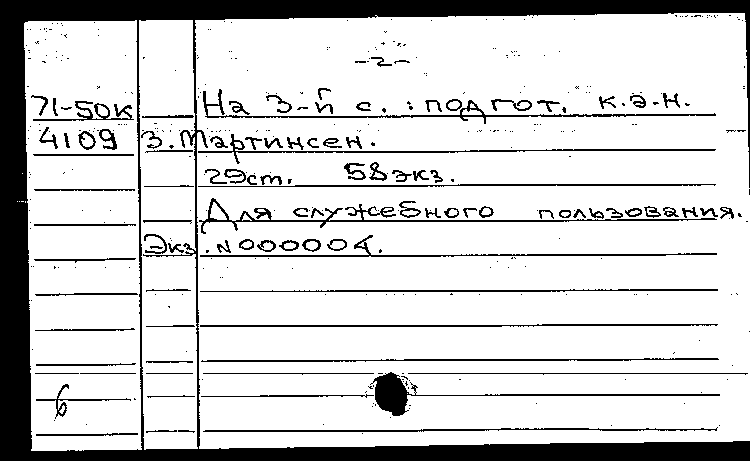 -2-
71-50к На 3-й с.: подгот. к.э.н.
4109 З. Мартинсен.
29ст. 58экз.
Для служебного пользования.
Экз. N000004.
6